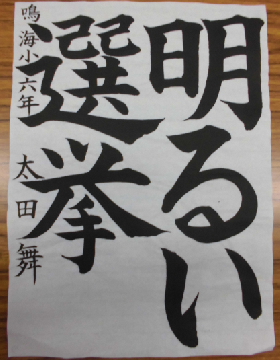 明るい
選挙
鳴海小六年 太田舞